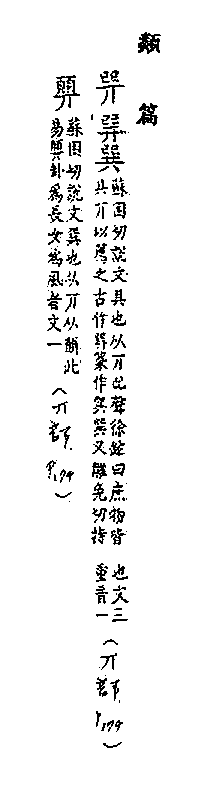 類篇
𢀿𢁅巽
蘇困切說文具也从丌𠨎聲徐鉉曰庶物皆
共丌以薦之古作𢁅篆作巽巽又雛免切持
也文三
重音一
(丌部 P.174)
顨
蘇困切說文巽也从丌从頁頁此
易顨卦為長女為風者文一
(丌部 P.174)